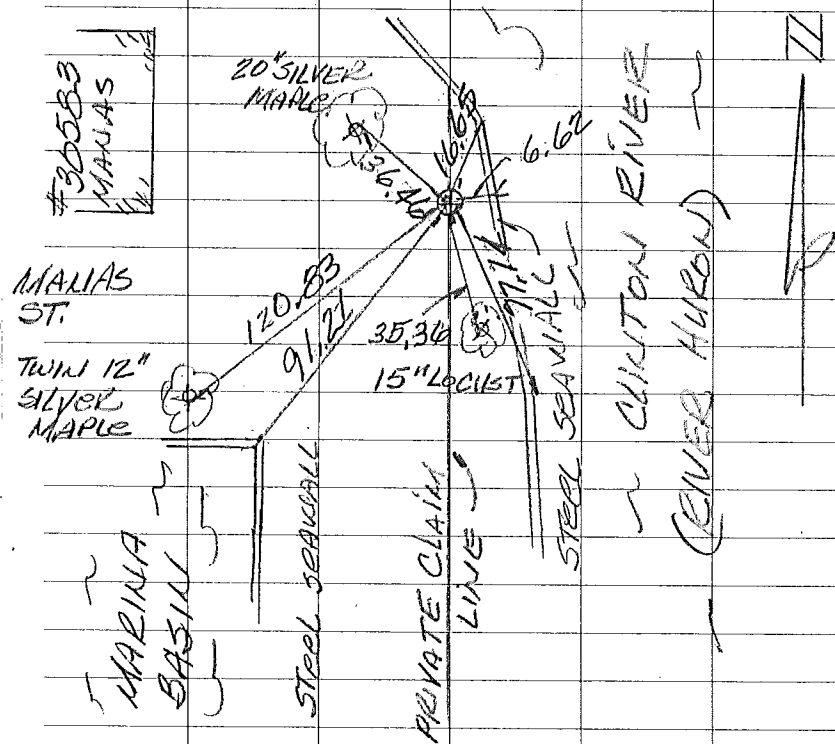 #30583
MANAS
20" SILVER
MAPLE
16.65
6.62
36.46
MANAS
ST.
120.83
91.21
35.36
TWIN 12"
SILVER
MAPLE
15" LOCUST
MARINA
BASIN
STEEL SEAWALL
PRIVATE CLAIM
LINE
STEEL SEAWALL
CLINTON RIVER
(RIVER HURON)
N